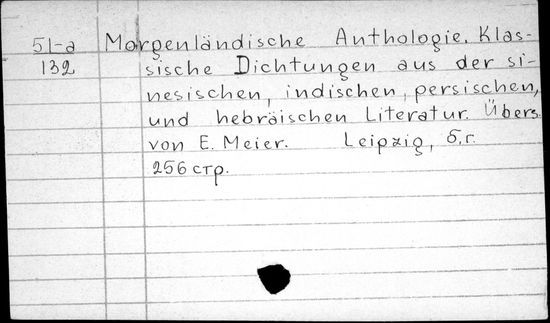 51-а Morgenländische Anthologie. Klas-
132 sische Dichtungen aus der si-
nesischen, indischen, persischen,
und hebräischen Literatur. Übers.
von E. Meier. Leipzig, б.г.
256 стр.